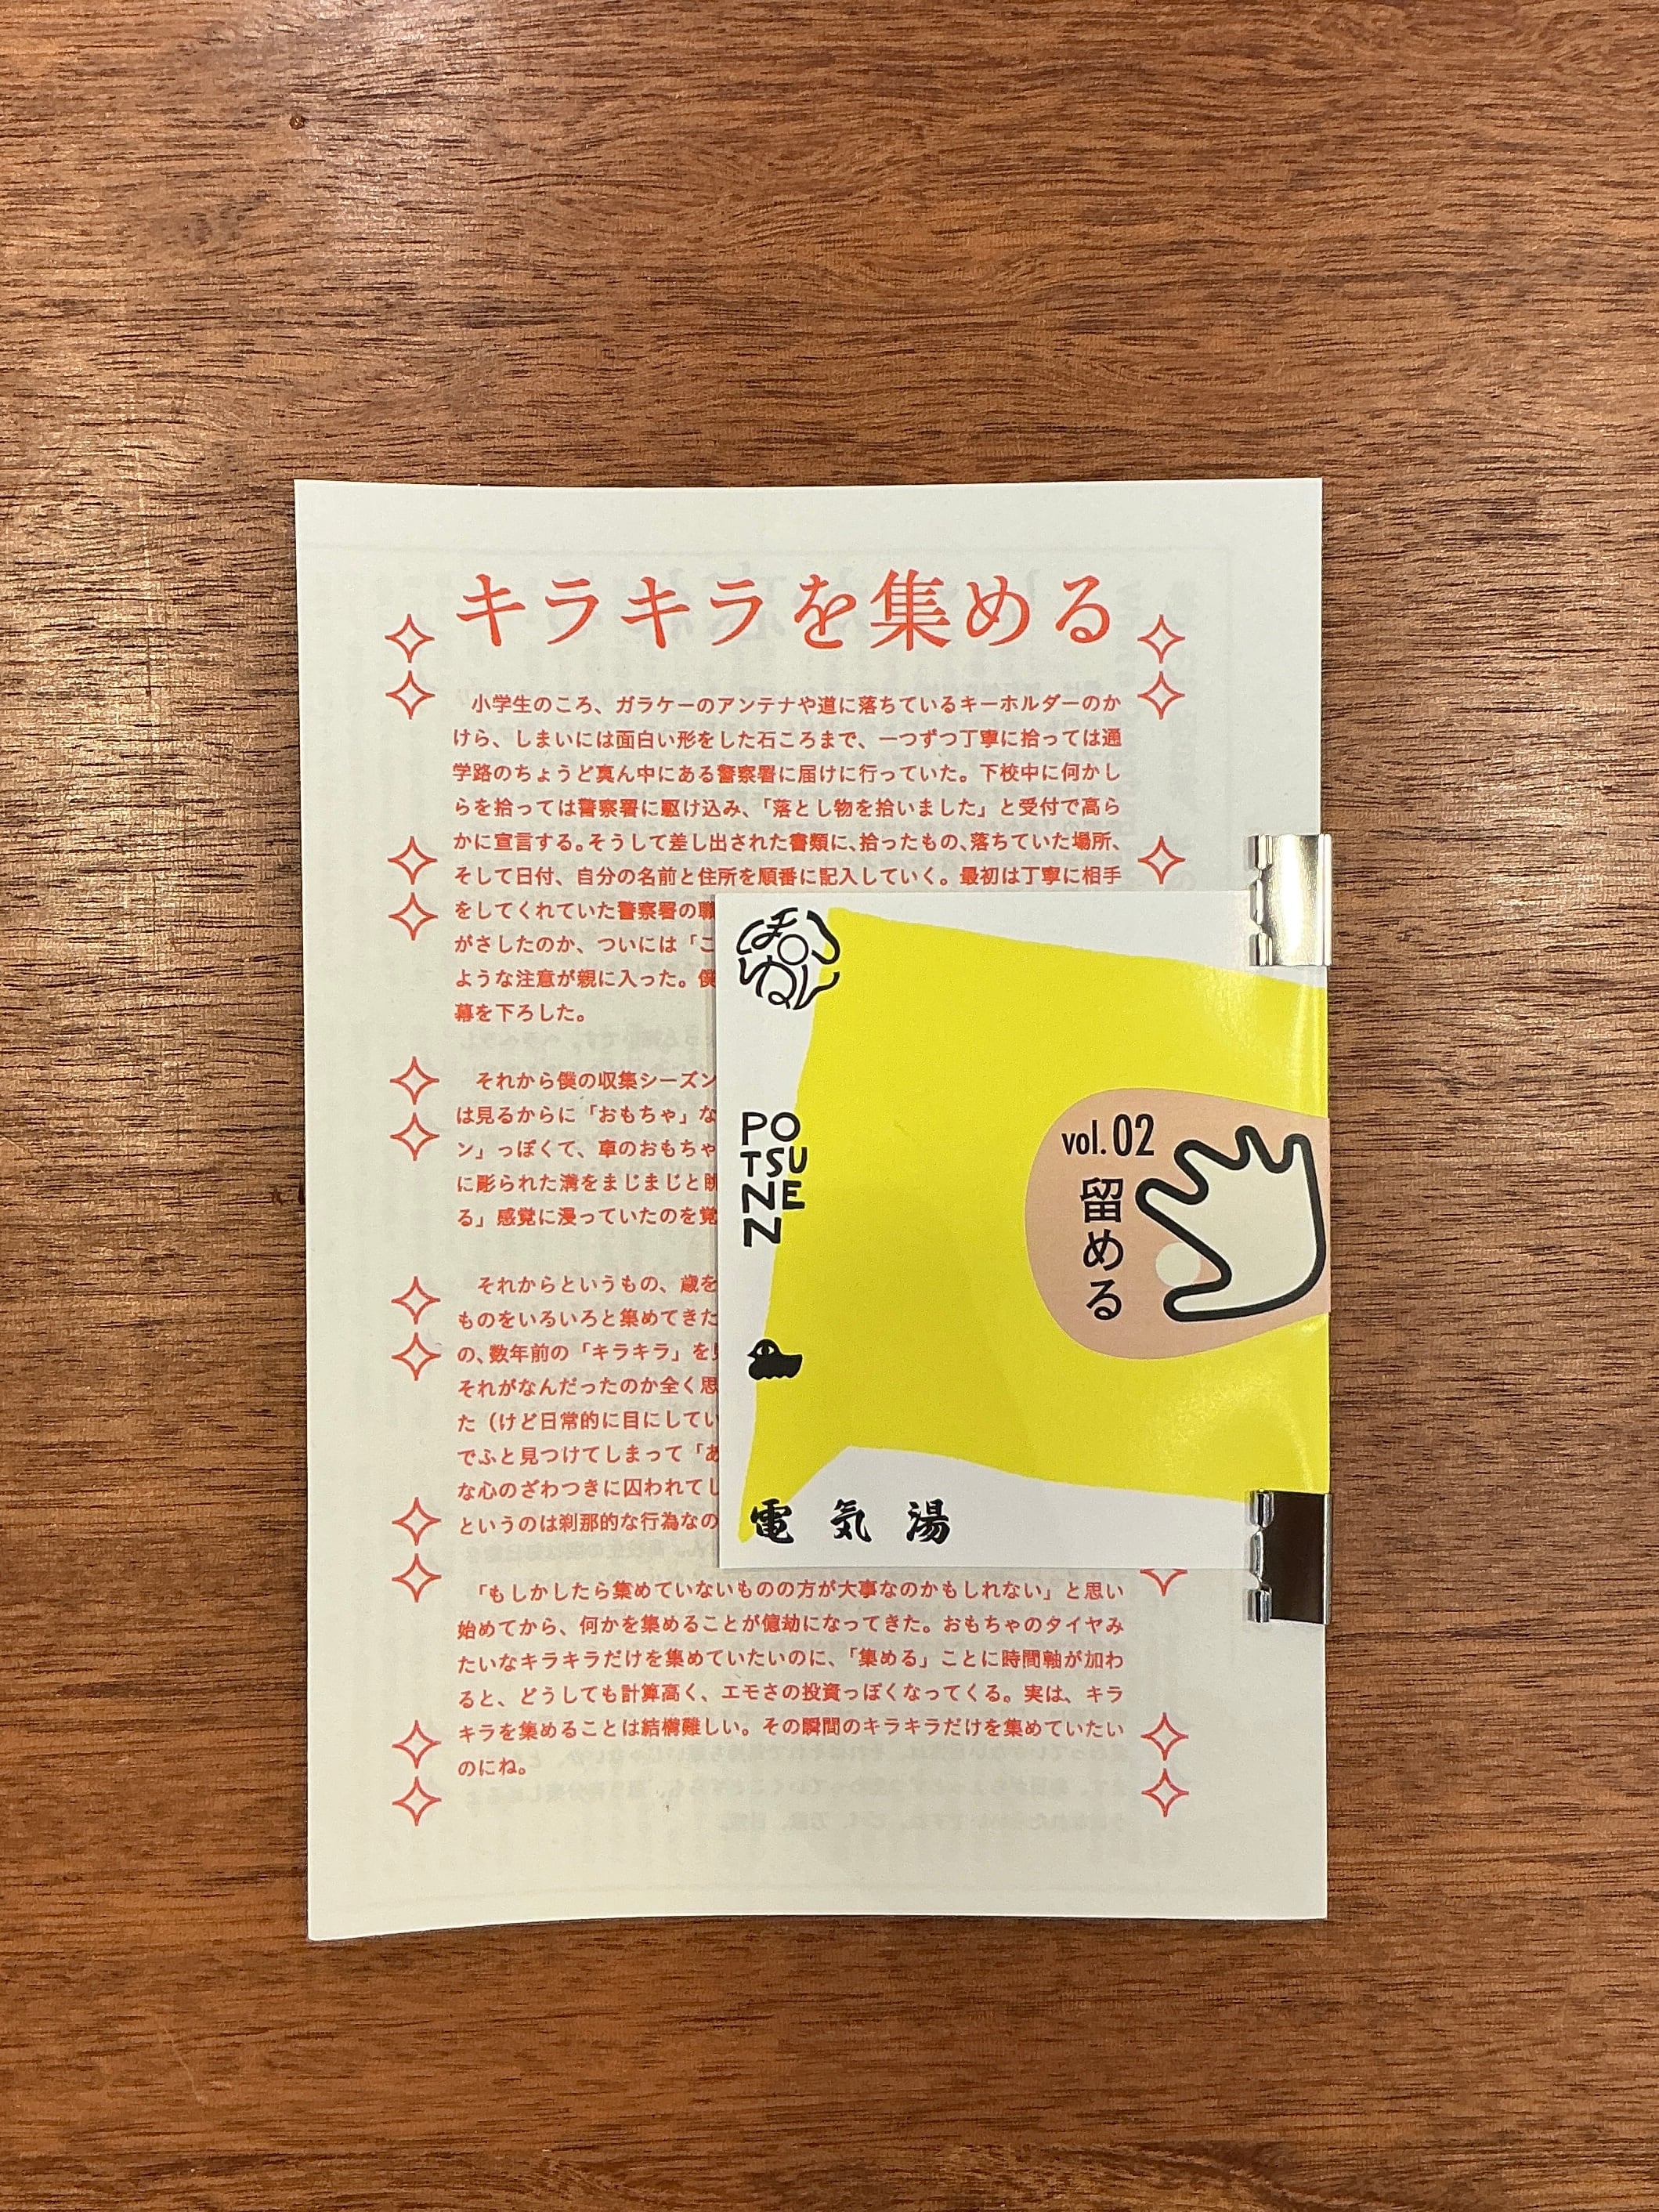 キラキラを集める
小学生のころ、ガラケーのアンテナや道に落ちているキーホルダーのか
けら、しまいには面白い形をした石ころまで、一つずつ丁寧に拾っては通
学路のちょうど真ん中にある警察署に届けに行っていた。下校中に何かし
らを拾っては警察署に駆け込み、「落とし物を拾いました」と受付で高ら
かに宣言する。そうして差し出された書類に、拾ったもの、落ちていた場所、
そして日付、自分の名前と住所を順番に記入していく。最初は丁寧に相手
をしてくれていた警察署の職
がさしたのか、ついには「こ
ような注意が親に入った。僕
幕を下ろした。
それから僕の収集シーズン
は見るからに「おもちゃ」な
ン」っぽくて、車のおもちゃ
に彫られた溝をまじまじと眺
る」感覚に浸っていたのを覚
それからというもの、歳を
ものをいろいろと集めてきた
の、数年前の「キラキラ」を見
それがなんだったのか全く思
た（けど日常的に目にしてい
でふと見つけてしまって「あ
な心のざわつきに囚われてし
というのは刹那的な行為なの
「もしかしたら集めていないものの方が大事なのかもしれない」と思い
始めてから、何かを集めることが億劫になってきた。おもちゃのタイヤみ
たいなキラキラだけを集めていたいのに、「集める」ことに時間軸が加わ
ると、どうしても計算高く、エモさの投資っぽくなってくる。実は、キラ
キラを集めることは結構難しい。その瞬間のキラキラだけを集めていたい
のにね。
PO
TSU
NE
N
vol. 02
留める
電気湯